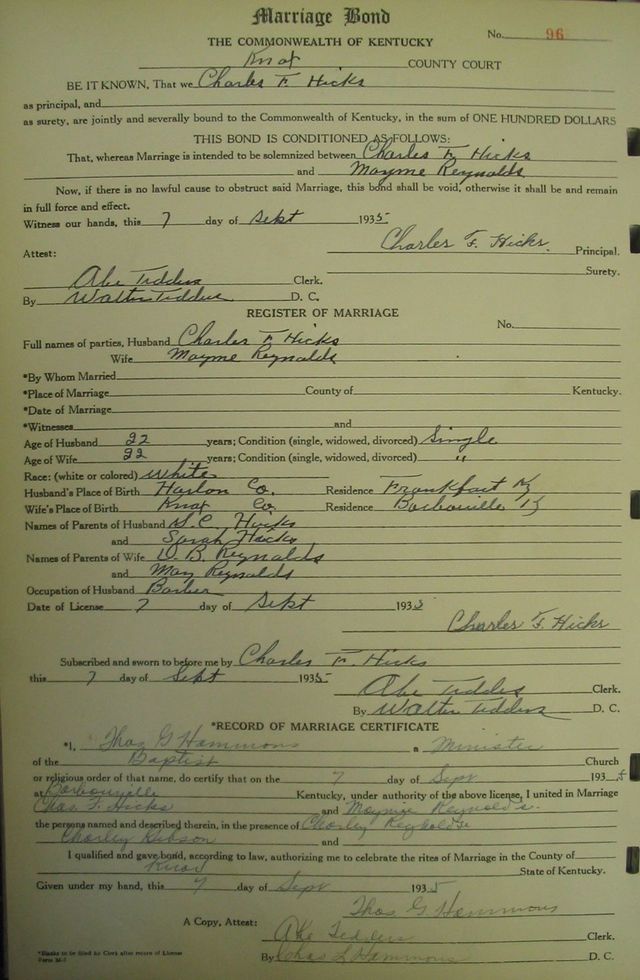 Marriage Bond
No. 96
THE COMMONWEALTH OF KENTUCKY
Knox COUNTY COURT
BE IT KNOWN, That we Charles F. Hicks
as principal, and
as surety, are jointly and severally bound to the Commonwealth of Kentucky, in the sum of ONE HUNDRED DOLLARS
THIS BOND IS CONDITIONED AS FOLLOWS:
That, whereas Marriage is intended to be solemnized between Charles F. Hicks
and Mayme Reynolds
Now, if there is no lawful cause to obstruct said Marriage, this bond shall be void, otherwise it shall be and remain
in full force and effect.
Witness our hands, this 7 day of Sept 1935
Charles F. Hicks. Principal.
Attest: Surety.
Abe Tedders Clerk.
By Walter Tedders D. C.
REGISTER OF MARRIAGE
No.
Full names of parties, Husband Charles F. Hicks
Wife Mayme Reynolds
*By Whom Married
*Place of Marriage County of Kentucky.
*Date of Marriage
*Witnesses and
Age of Husband 22 years; Condition (single, widowed, divorced) Single
Age of Wife 22 years; Condition (single, widowed, divorced) "
Race: (white or colored) White
Husband's Place of Birth Harlan Co. Residence Frankfort Ky
Wife's Place of Birth Knox Co. Residence Barbourville Ky
Names of Parents of Husband S.C. Hicks
and Sarah Hicks
Names of Parents of Wife W. B. Reynolds
and May Reynolds
Occupation of Husband Barber
Date of License 7 day of Sept 1935
Charles F. Hicks
Subscribed and sworn to before me by Charles F. Hicks
this 7 day of Sept 1935
Abe Tedders Clerk.
By Walter Tedders D. C.
*RECORD OF MARRIAGE CERTIFICATE
*I, Thos G Hammons a Minister
of the Baptist Church
or religious order of that name, do certify that on the 7 day of Sept 1935
at Barbourville Kentucky, under authority of the above license, I united in Marriage
Chas F. Hicks and Maymie Reynolds.
the persons named and described therein, in the presence of Charley Reynolds
Charley and
I qualified and gave bond, according to law, authorizing me to celebrate the rites of Marriage in the County of
Knox State of Kentucky.
Given under my hand, this 7 day of Sept 1935
Thos G Hammons
A Copy, Attest: Abe Tedders Clerk.
By Chas L Hammons D. C.
*Blanks to be filled by Clerk after return of License